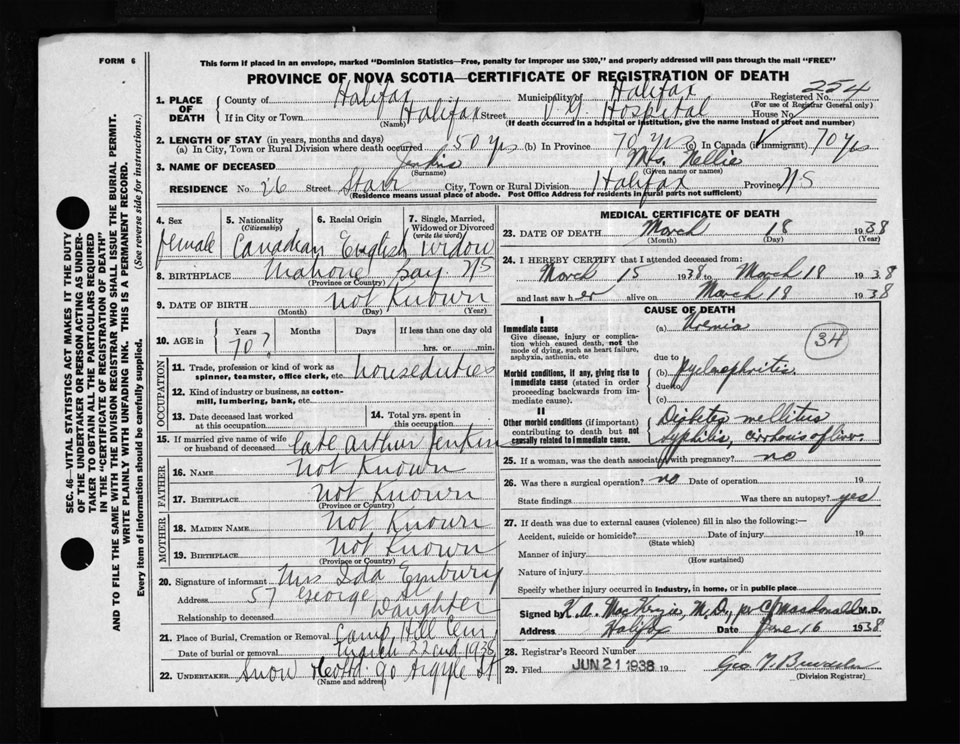 FORM 6
This form if placed in an envelope, marked "Dominion Statistics—Free, penalty for improper use $300," and properly addressed will pass through the mail "FREE"
PROVINCE OF NOVA SCOTIA—CERTIFICATE OF REGISTRATION OF DEATH
1. PLACE OF DEATH
County of Halifax Municipality of Halifax Registered No. 254
(For use of Registrar General only)
If in City or Town Halifax Street V G Hospital House No.
(Name) (If death occurred in a hospital or institution, give the name instead of street and number)
2. LENGTH OF STAY (in years, months and days)
(a) In City, Town or Rural Division where death occurred 50 yrs (b) In Province 70 yrs (c) In Canada (if immigrant) 70 yrs
3. NAME OF DECEASED Jenkins Mrs. Nellie
(Surname) (Given name or names)
RESIDENCE No. 26 Street Starr City, Town or Rural Division Halifax Province NS
(Residence means usual place of abode. Post Office Address for residents in rural parts not sufficient)
4. Sex female
5. Nationality (Citizenship) Canadian
6. Racial Origin English
7. Single, Married, Widowed or Divorced (write the word) Widow
8. BIRTHPLACE Mahone Bay NS
(Province or Country)
9. DATE OF BIRTH Not Known
(Month) (Day) (Year)
10. AGE in Years Months Days If less than one day old
70? hrs. or min.
OCCUPATION
11. Trade, profession or kind of work as spinner, teamster, office clerk, etc. houseduties
12. Kind of industry or business, as cotton-mill, lumbering, bank, etc.
13. Date deceased last worked at this occupation
14. Total yrs. spent in this occupation
15. If married give name of wife or husband of deceased Late Arthur Jenkins
FATHER
16. NAME Not Known
17. BIRTHPLACE Not Known
(Province or Country)
MOTHER
18. MAIDEN NAME Not Known
19. BIRTHPLACE Not Known
(Province or Country)
20. Signature of informant Mrs Ida Embury
Address 57 George St
Relationship to deceased Daughter
21. Place of Burial, Cremation or Removal Camp Hill Cem
Date of burial or removal March 22nd 1938
22. UNDERTAKER Snow 90 Argyle St
(Name and address)
MEDICAL CERTIFICATE OF DEATH
23. DATE OF DEATH March 18 1938
(Month) (Day) (Year)
24. I HEREBY CERTIFY that I attended deceased from:
March 15 1938 to March 18 1938
and last saw her alive on March 18 1938
CAUSE OF DEATH
I
Immediate cause
Give disease, injury or complication which caused death, not the mode of dying, such as heart failure, asphyxia, asthenia, etc
(a) Uremia
34
due to
Morbid conditions, if any, giving rise to immediate cause (stated in order proceeding backwards from immediate cause).
(b) Pyelonephritis
due to
(c)
II
Other morbid conditions (if important) contributing to death but not causally related to immediate cause.
Diabetes mellitus
syphilis, cirrhosis of liver.
25. If a woman, was the death associated with pregnancy? no
26. Was there a surgical operation? no Date of operation 19
State findings Was there an autopsy? yes
27. If death was due to external causes (violence) fill in also the following:—
Accident, suicide or homicide? Date of injury 19
(State which)
Manner of injury
(How sustained)
Nature of injury
Specify whether injury occurred in industry, in home, or in public place
Signed by K. A. MacKenzie, M.D., per C Macdonald M.D.
Address Halifax Date June 16 1938
28. Registrar's Record Number
29. Filed JUN 21 1938
(Division Registrar)
SEC. 46—VITAL STATISTICS ACT MAKES IT THE DUTY
OF THE UNDERTAKER OR PERSON ACTING AS UNDER-
TAKER TO OBTAIN ALL THE PARTICULARS REQUIRED
IN THE "CERTIFICATE OF REGISTRATION OF DEATH"
AND TO FILE THE SAME WITH THE DIVISION REGISTRAR WHO SHALL ISSUE THE BURIAL PERMIT.
WRITE PLAINLY WITH UNFADING INK. THIS IS A PERMANENT RECORD.
Every item of information should be carefully supplied. (See reverse side for instructions.)